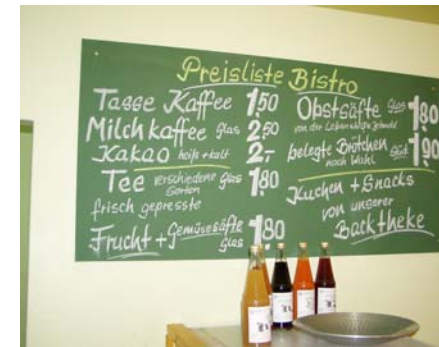 Preisliste Bistro
Tasse Kaffee 1,50
Milchkaffee Glas 2,50
Kakao heiß + kalt 2,-
Tee verschiedene Sorten Glas 1,80
frisch gepresste
Frucht + Gemüsesäfte Glas 1,80
Obstsäfte Glas 1,80
von der Lebenshilfe
belegte Brötchen nach Wahl Stück 1,90
Kuchen + Snacks
von unserer
Backtheke